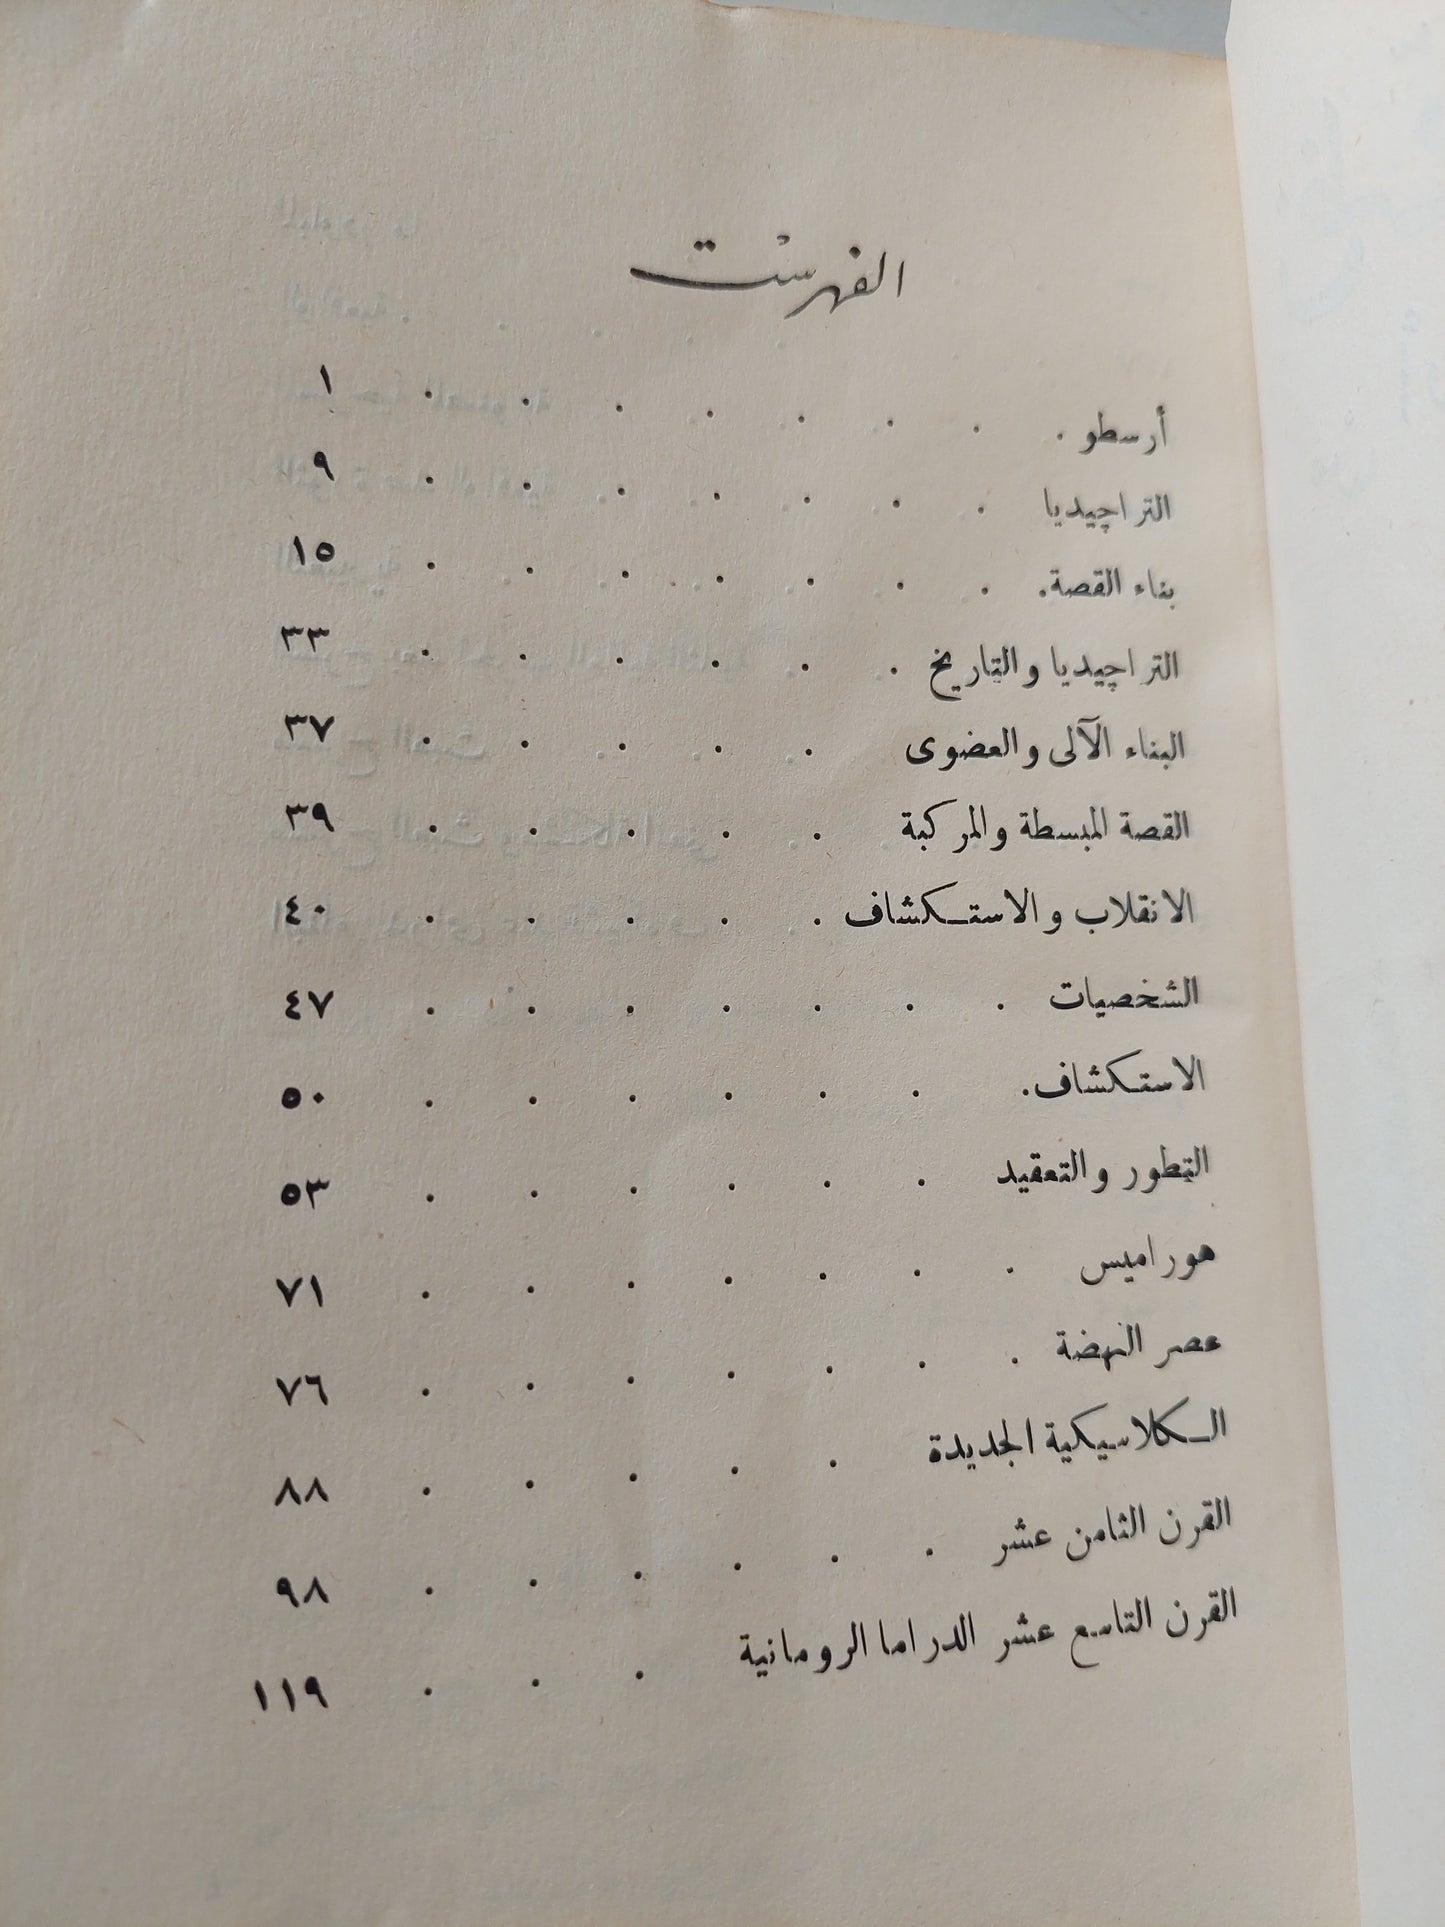 الفهرست
أرسطو . . . . . . . . ١
التراچيديا . . . . . . . ٩
بناء القصة . . . . . . . . ١٥
التراچيديا والتاريخ . . . . . . ٣٣
البناء الآلى والعضوى . . . . . ٣٧
القصة المبسطة والمركبة . . . . . ٣٩
الانقلاب والاستكشاف . . . . . ٤٠
الشخصيات . . . . . . . ٤٧
الاستكشاف . . . . . . . ٥٠
التطور والتعقيد . . . . . . ٥٣
هوراميس . . . . . . . ٧١
عصر النهضة . . . . . . . ٧٦
الكلاسيكية الجديدة . . . . . ٨٨
القرن الثامن عشر . . . . . . ٩٨
القرن التاسع عشر الدراما الرومانية . . . ١١٩